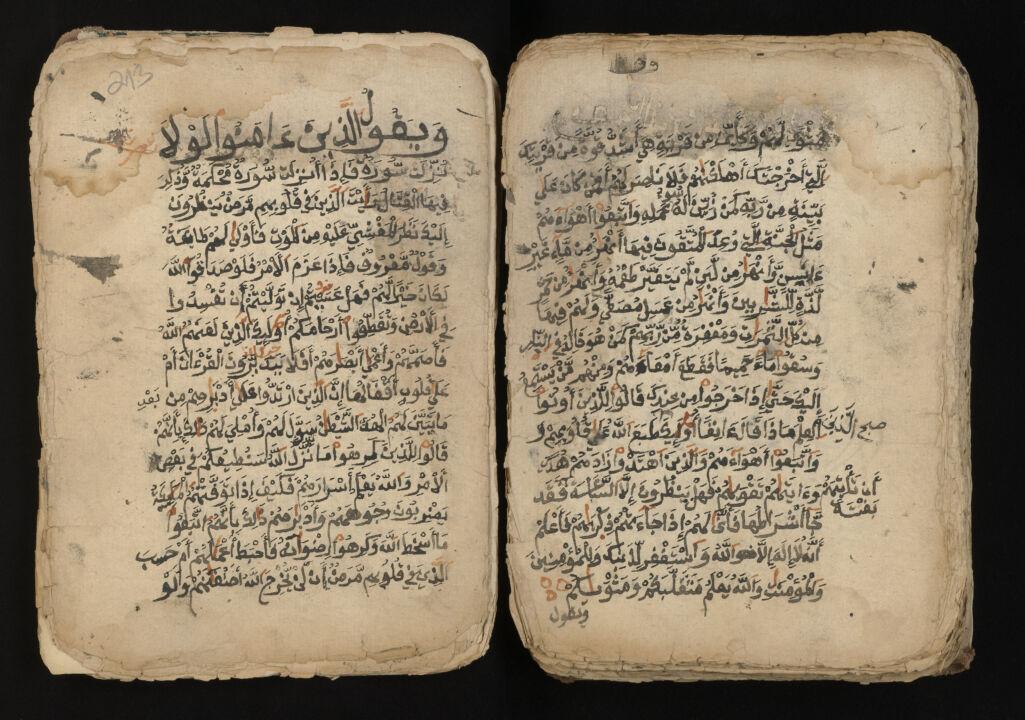 مثوى لهم وكأين من قرية هي أشد قوة من قريتك
التي أخرجتك أهلكنهم فلا ناصر لهم أفمن كان على
بينة من ربه كمن زين له سوء عمله واتبعوا أهواءهم
مثل الجنة التي وعد المتقون فيها أنهر من ماء غير
ءاسن وأنهر من لبن لم يتغير طعمه وأنهر من خمر
لذة للشربين وأنهر من عسل مصفى ولهم فيها
من كل الثمرت ومغفرة من ربهم كمن هو خلد في النار
وسقوا ماء حميما فقطع أمعاءهم ومنهم من يستمع
إليك حتى إذا خرجوا من عندك قالوا للذين أوتوا
العلم ماذا قال ءانفا أولئك الذين طبع الله على قلوبهم و
واتبعوا أهواءهم والذين اهتدوا زادهم هدى
وءاتيهم تقويهم فهل ينظرون إلا الساعة أن تأتيهم بغتة فقد
جا أشراطها فأنى لهم إذا جاءتهم ذكريهم فاعلم
أنه لا إله إلا هو الله واستغفر لذنبك وللمؤمنين
والمؤمنت والله يعلم متقلبكم ومثويكم
ويقول
213
ويقول الذين ءامنوا لولا
نزلت سورة فإذا أنزلت سورة محكمة وذكر
فيها القتال رأيت الذين في قلوبهم مرض ينظرون
إليك نظر المغشي عليه من الموت فأولى لهم طاعة
وقول معروف فإذا عزم الأمر فلو صدقوا الله
لكان خيرا لهم فهل عسيتم إن توليتم أن تفسدوا
في الأرض وتقطعوا أرحامكم أولئك الذين لعنهم الله
فأصمهم وأعمى أبصرهم أفلا يتدبرون القرءان أم
على قلوب أقفالها إن الذين ارتدوا على أدبرهم من بعد
ما تبين لهم الهدى الشيطن سول لهم وأملى لهم ذلك بأنهم
قالوا للذين كرهوا ما نزل الله سنطيعكم في بعض
الأمر والله يعلم أسرارهم فكيف إذا توفتهم الملئكة
يضربون وجوههم وأدبرهم ذلك بأنهم اتبعوا
ما أسخط الله وكرهوا رضونه فأحبط أعملهم أم حسب
الذين في قلوبهم مرض أن لن يخرج الله أضغنهم ولو